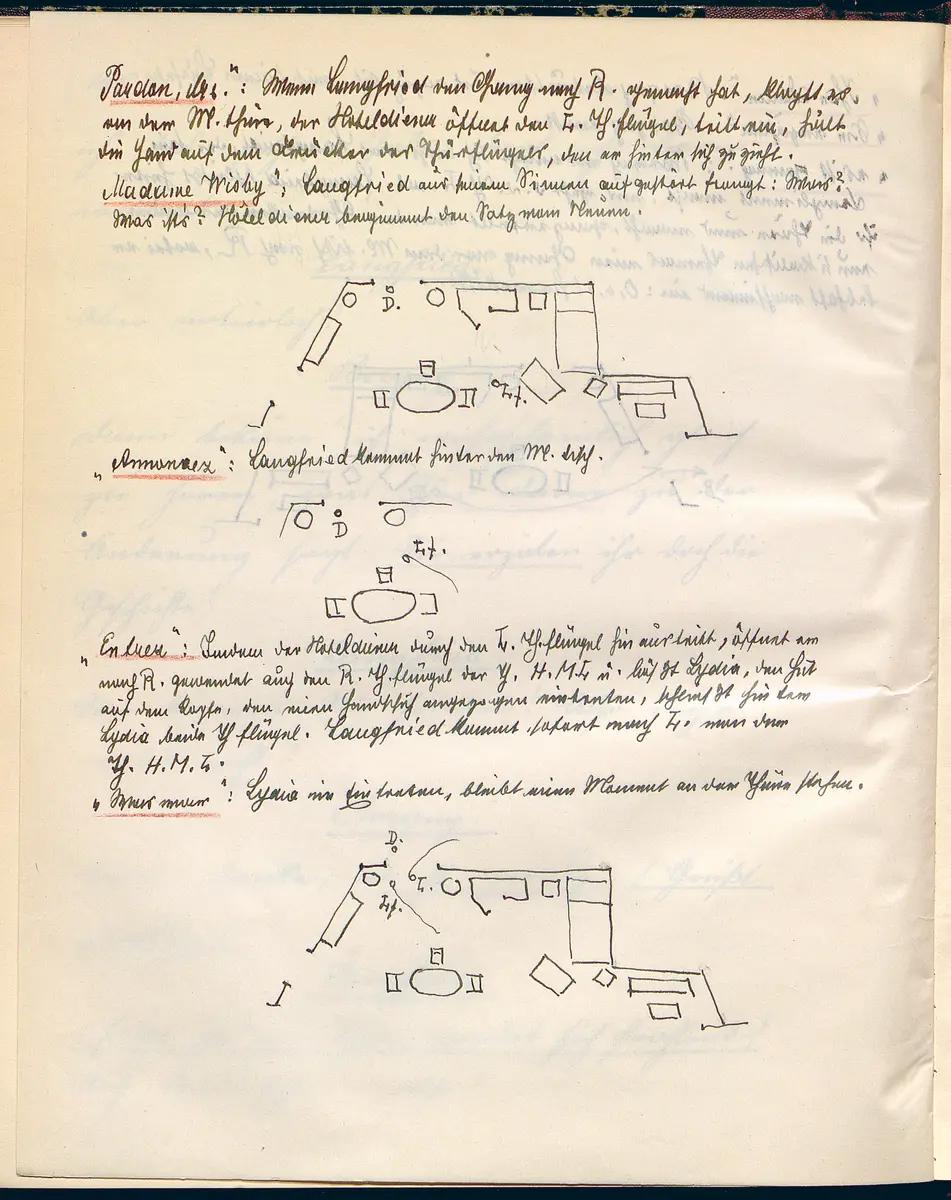 Pardon, Mss.": Wenn Langfried den Gang nach R. gemacht hat, klopft es
an der M. thüre, der Hoteldiener öffnet den L. Th. flügel, tritt ein, hält
die Hand auf dem Drücker des Thürflügels, den er hinter sich zu zieht.
Madame Wisby": Langfried aus seinem Sinnen aufgestört fragt: Was?
Was ist's? Hôteldiener beginnt den Satz vom Neuen.
D.
Lf.
"Annoncez": Langfried kommt hinter den M. tisch.
D
Lf.
"Entrez": Indem der Hoteldiener durch den L. Th. flügel hinaustritt, öffnet er
nach R. gewendet auch den R. Th. flügel der Th. H. M. L u. läßt Lydia, den Hut
auf dem Kopfe, den einen Handschuh angezogen eintreten, schließt hinter
Lydia beide Th flügel. Langfried kommt sofort nach L. von der
Th. H. M. L.
"Was war": Lydia im Eintreten, bleibt einen Moment an der Thüre stehen.
D.
L.
Lf.